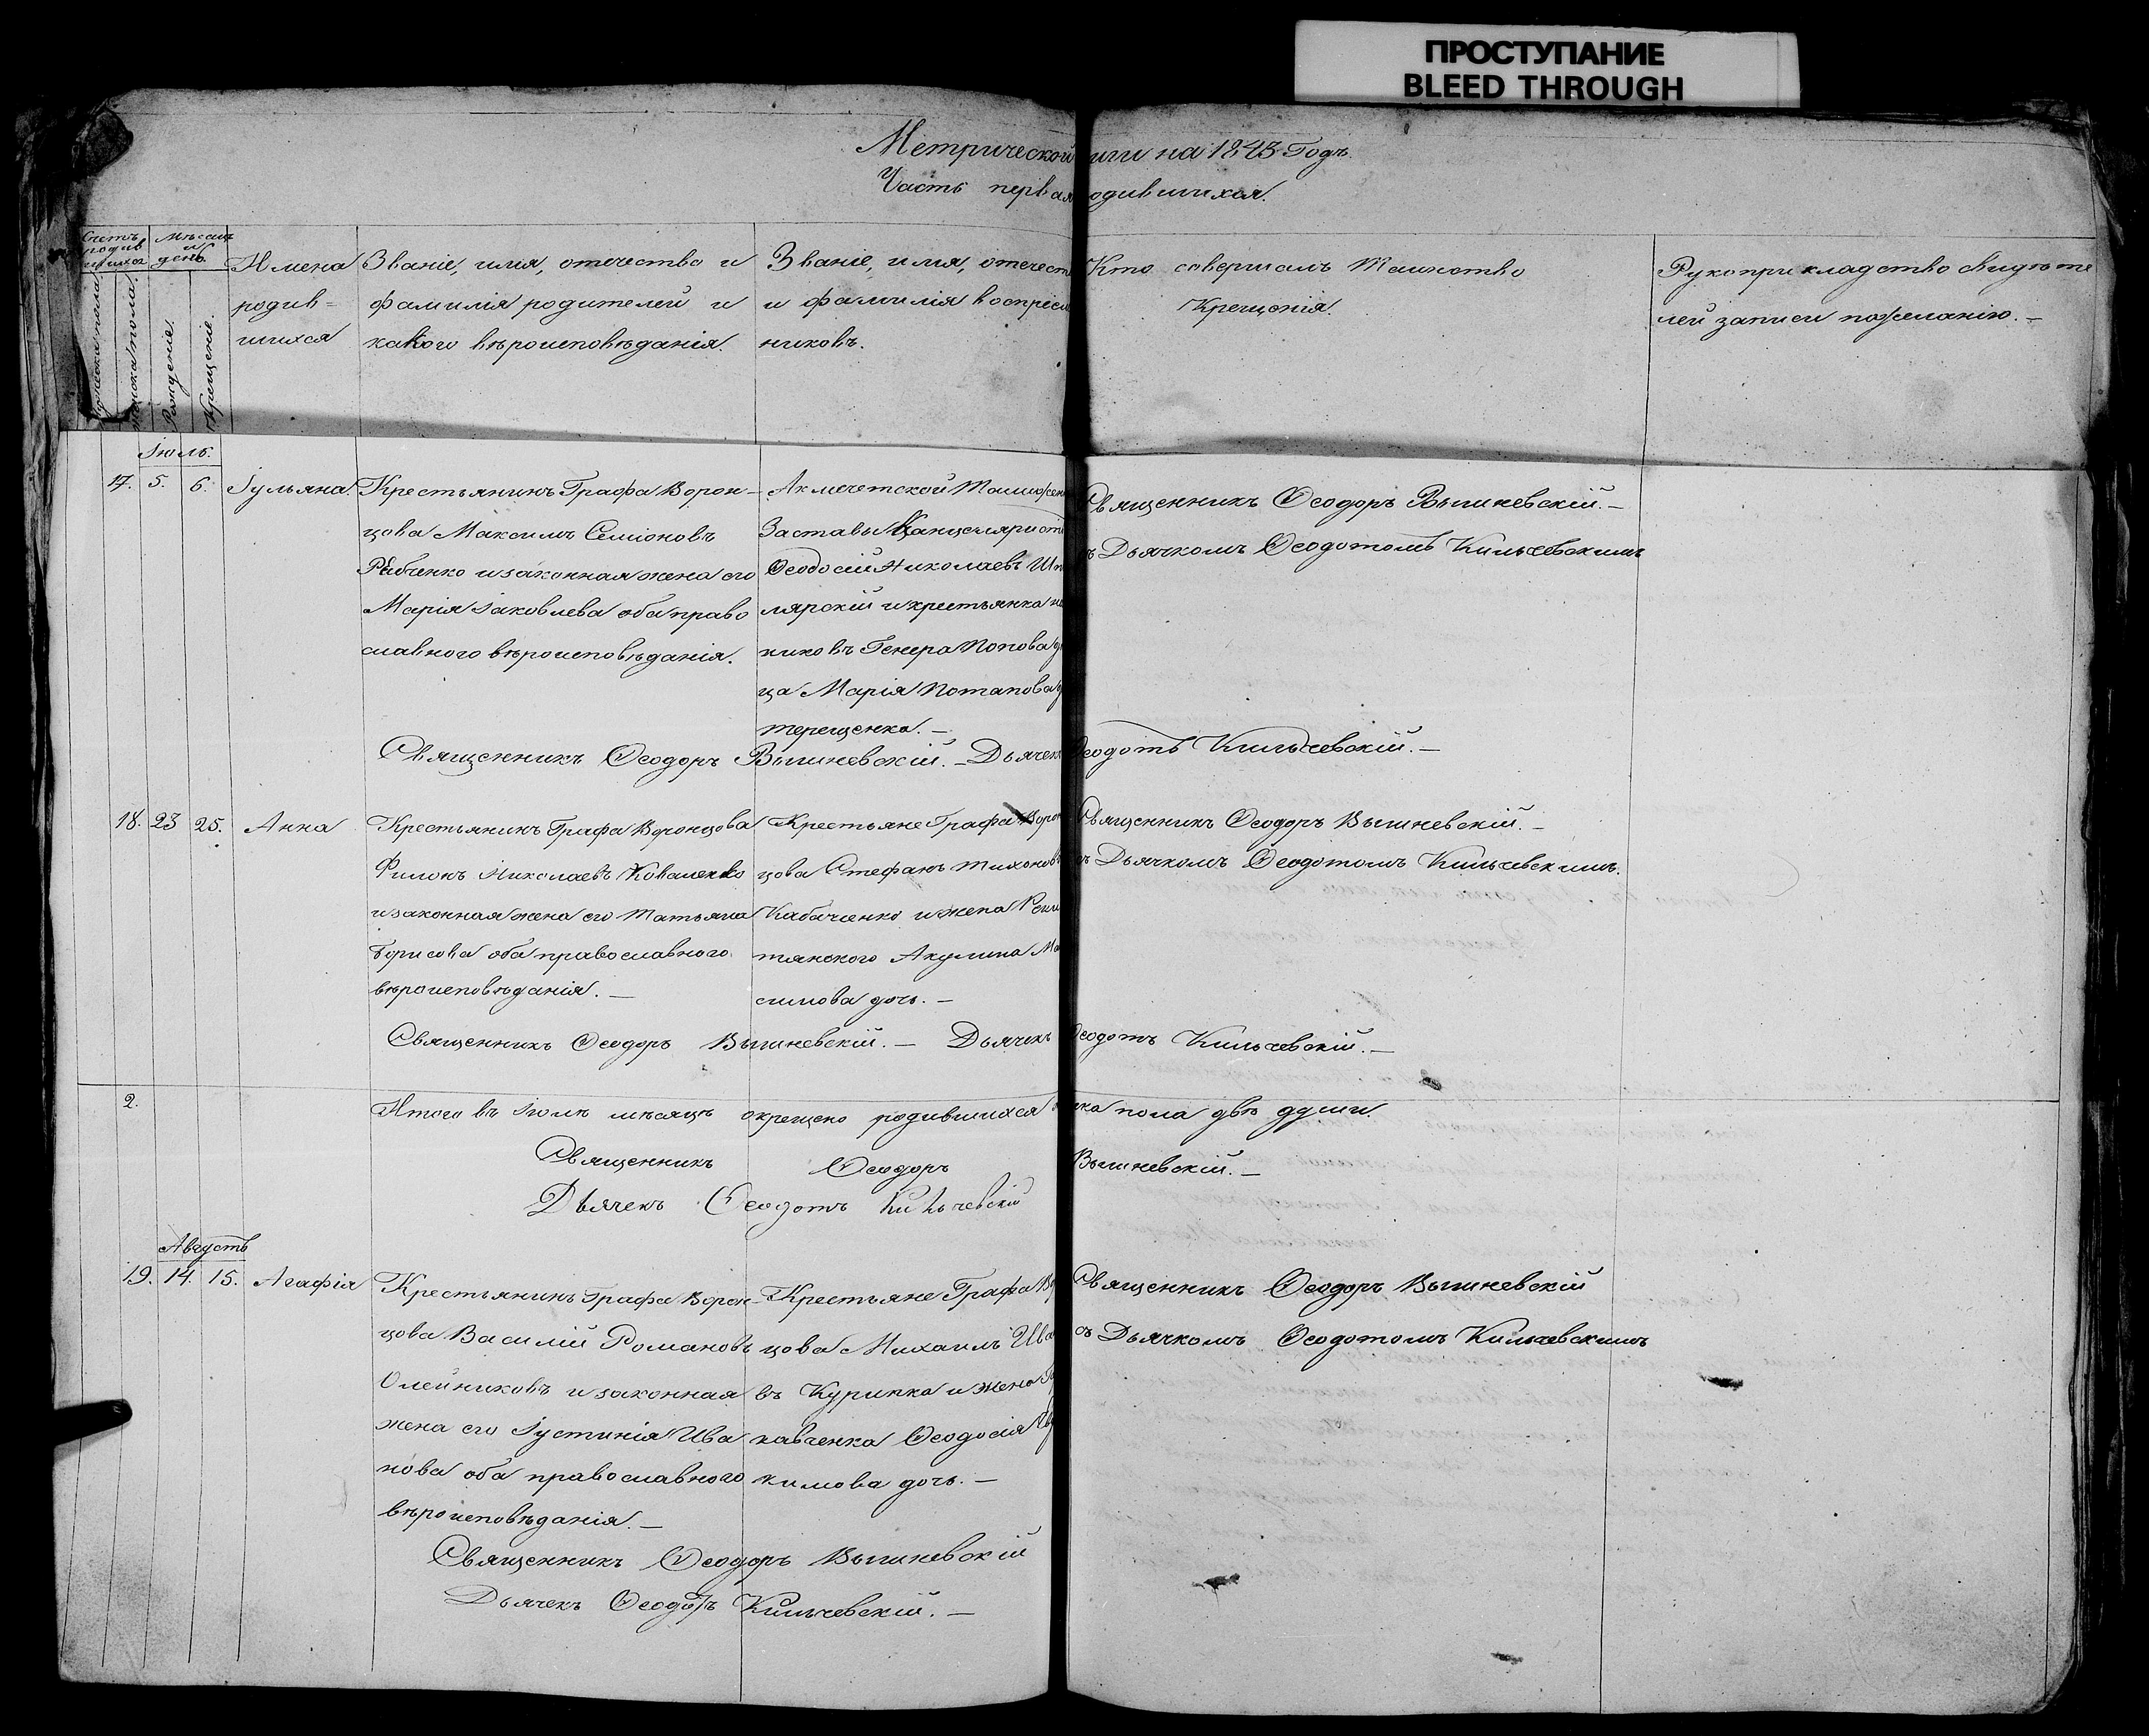 ПРОСТУПАНИЕ
BLEED THROUGH
Метрической иги на 1843 Годъ.
Часть первая одившихся.
Счетъ родив шихся
Мѣсяцъ и день.
Мужска пола.
Женска пола.
Рожденіе.
Крещеніе.
Имена
родив=
шихся
Званіе, имя, отечество и
фамилія родителей и
какого вѣроисповѣданія.
Званіе, имя, отечест
и фамилія воспріем
никовъ.
Кто совершалъ Таинство
Крещенія.
Рукоприкладство свидѣте
лей записи пожеланію. —
Іюль.
17. 5. 6. Іульяна.
Крестьянинъ Графа Ворон-
цова Максимъ Семіоновъ
Рябченко и законная жена его
Марія Іаковлева оба право
славного вѣроисповѣданія.
Акмечетской Таможен
Заставы Канцеляристъ
Ѳеодосій Николаевъ
лярскій и крестьянка
никовъ Генера Попова
ца Марія Потапова
терещенка. —
Священникъ Ѳеодоръ Вышневскій. —
ъ Дьячкомъ Ѳеодотомъ Кильчевскимъ
Священникъ Ѳеодоръ Вышневскій. — Дьячек Ѳеодотъ Кильчевскій. —
18. 23 25. Анна
Крестьянинъ Графа Воронцова
Филонъ Николаевъ Коваленко
и законная жена его Татьяна
Борисова оба православного
вѣроисповѣданія. —
Крестьяне Графа Ворон
цова Стефанъ Тихонов
Кабаченко и жена
тянского Акулина Ма
симова дочь. —
Священникъ Ѳеодоръ Вышневскій. —
ъ Дьячкомъ Ѳеодотомъ Кильчевскимъ.
Священникъ Ѳеодоръ Вышневскій. — Дьячекъ Ѳеодотъ Кильчевскій. —
2.
Итого въ Іюлѣ мѣсяцѣ окрещено родившихся ска пола двѣ души.
Священникъ Ѳеодоръ Вышневскій. —
Дьячекъ Ѳеодотъ Кильчевскій
Августъ
19. 14. 15. Агафія
Крестьянинъ Графа Ворон-
цова Василій Романовъ
Олейниковъ и законная
жена его Іустинія Ива
нова оба православного
вѣроисповѣданія. —
Крестьяне Графа Во
цова Михаилъ Ива
въ Курипка и жена
кавченка Ѳеодосія
кимова дочь. —
Священникъ Ѳеодоръ Вышневскій
съ Дьячкомъ Ѳеодотомъ Кильчевскимъ
Священникъ Ѳеодоръ Вышневскій
Дьячекъ Ѳеодотъ Кильчевскій. —